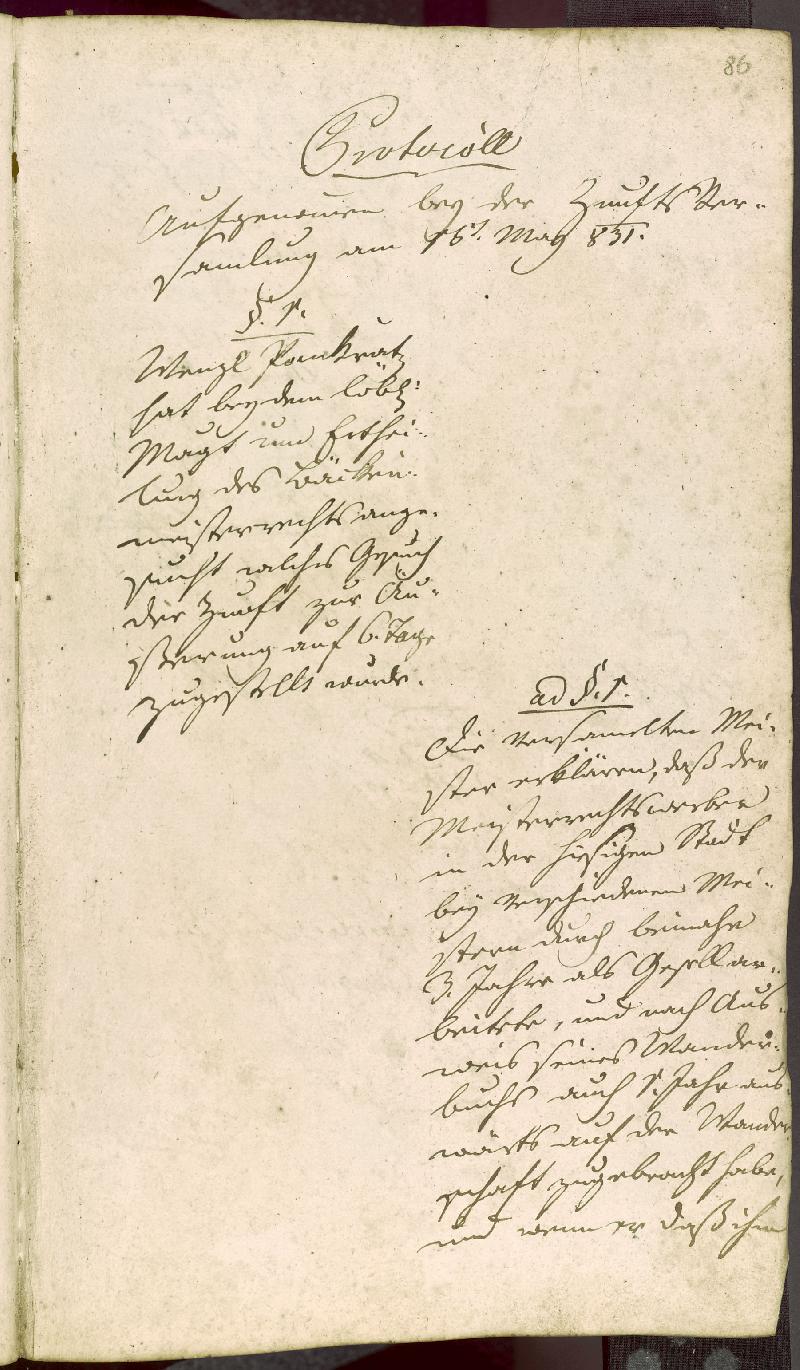 86
Protocoll
Aufgenomen bey der Zunfts Ver-
samlung am 16t. May 831.
§. 1.
Wenzl Pankratz
hat bey dem löbl:
Magt um Erthei-
lung des Bäcken-
meisterrechts ange-
sucht welches Gesuch
der Zunft zur Äu-
sserung auf 6. Tage
zugestellt wurde.
ad §. 1.
Die versamelten Mei-
ster erklären, daß der
Meisterrechtswerber
in der hiesigen Stadt
bey verschiedenen Mei-
stern durch beinahe
3. Jahre als Gesell ar-
beitete, und nach Aus-
weis seines Wander-
buchs auch 1. Jahr aus-
wärts auf der Wander
schaft zugebracht habe,
und wenn er daß ihm